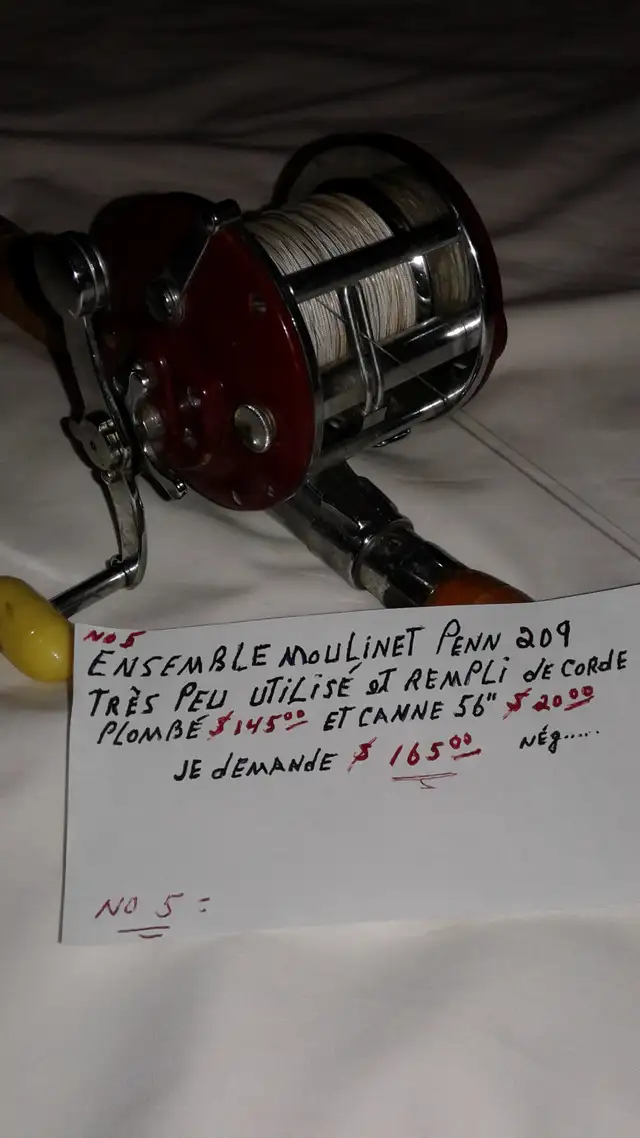 NO 5
ENSEMBLE MOULINET PENN 209
TRÈS PEU UTILISÉ et REMPLI de CORDE
PLOMBÉ $145⁰⁰ ET CANNE 56" $20⁰⁰
JE demANdE $165⁰⁰ NÉg.....
NO 5 =